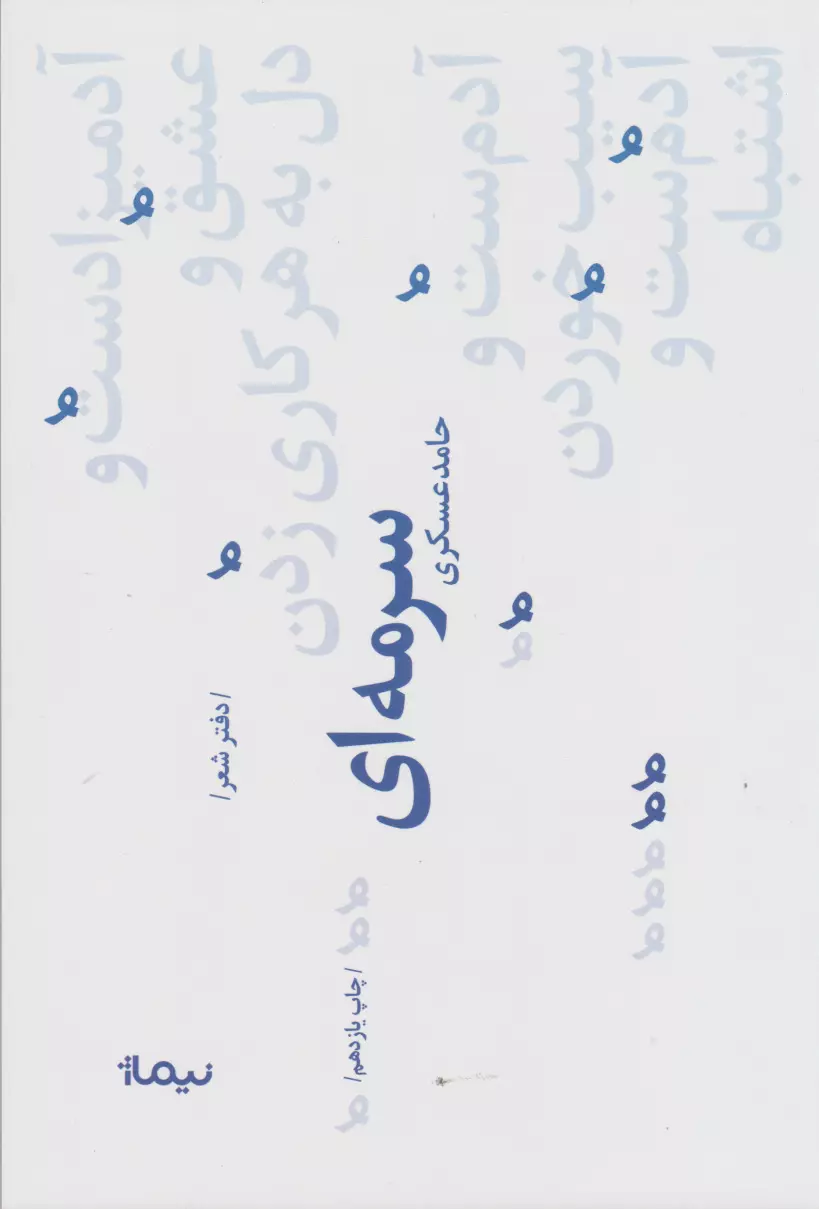 آدمیزادست و
عشق و
دل به هر کاری زدن
آدم ست و
سیب خوردن
آدم ست و
اشتباه
سرمه‌ای
حامد عسکری
/ دفتر شعر /
/ چاپ یازدهم /
نیماژ